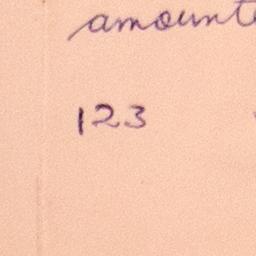 amount
123